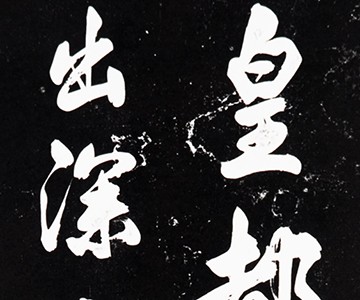 皇都
出深